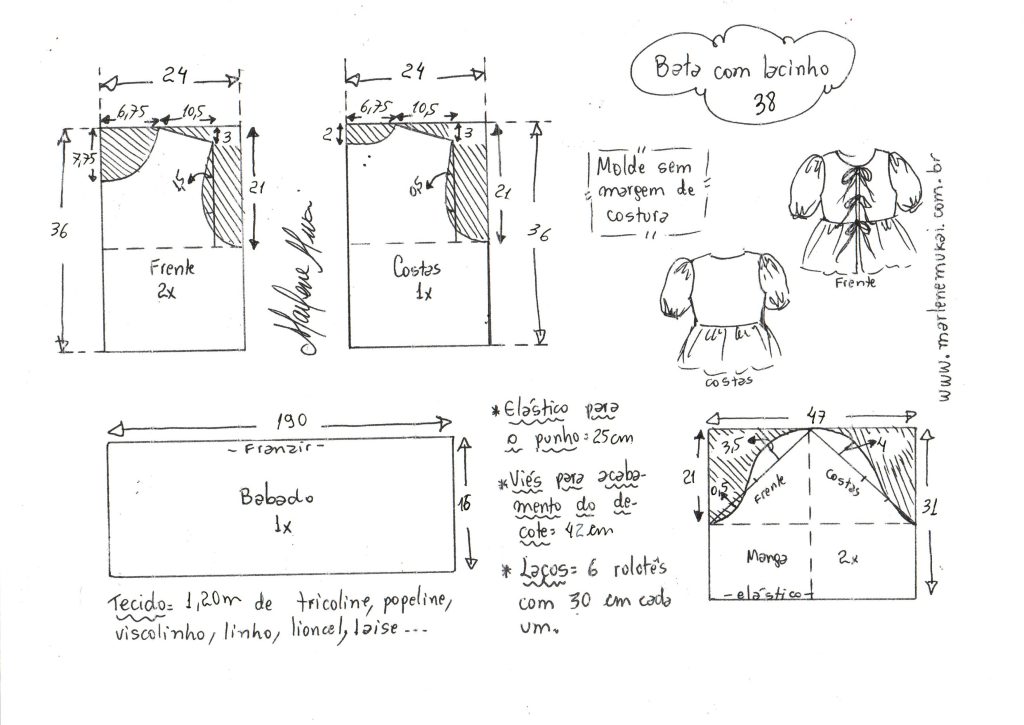 Bata com lacinho
38
Molde sem
margem de
costura
Frente
Costas
www.marlenemukai.com.br
24
6,75
10,5
3
7,75
36
21
Frente
2x
Marlene Mukai
24
6,75
10,5
2
3
21
36
Costas
1x
190
- Franzir -
Babado
1x
Tecido= 1,20m de tricoline, popeline,
viscolinho, linho, liocel, laise...
* Elástico para
o punho=25cm
* Viés para acaba-
mento do de-
cote= 42cm
* Laços= 6 rolotês
com 30 cm cada
um.
47
3,5
4
21
0,5
Frente
Costas
31
Manga 2x
-elástico-